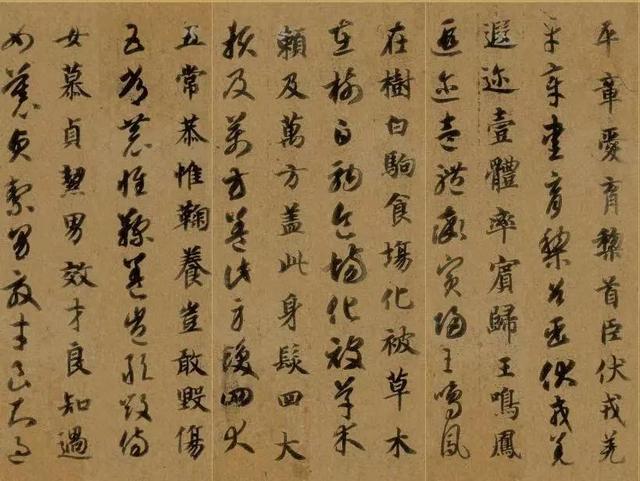 平章愛育黎首臣伏戎羌
平章愛育黎首臣伏戎羌
遐迩壹體率賓歸王鳴鳳
遐迩壹體率賓歸王鳴鳳
在樹白駒食場化被草木
在樹白駒食場化被草木
賴及萬方盖此身髮四大
賴及萬方盖此身髮四大
五常恭惟鞠養豈敢毀傷
五常恭惟鞠養豈敢毀傷
女慕貞絜男效才良知過
女慕貞絜男效才良知過